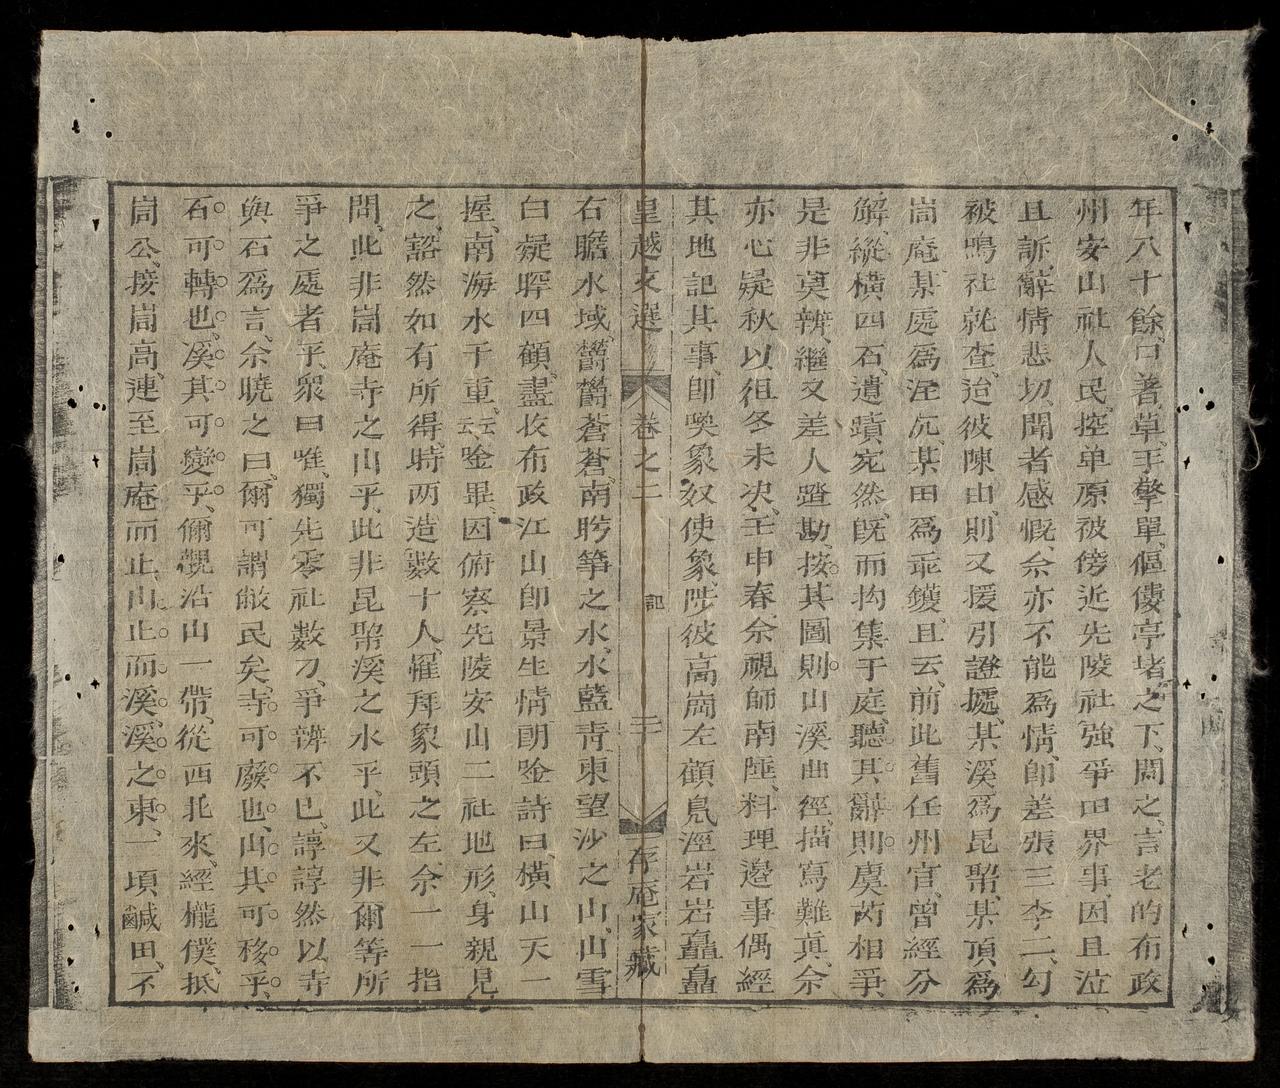 年八十餘、口著草、手擎單、傴僂亭堵之下、問之、言老的布政
州安山社人民、控单原被傍近先陵社強爭田界事、因且泣
且訴、辭情悲切、聞者感慨、余亦不能爲情、即差張三李二、勾
被鳴社就查、迨彼陳由、則又援引證據、某溪爲昆𤨒、某頂爲
崮庵、某處爲淫沉、某田爲乖鑊、且云、前此舊任州官、曾經分
解、縱橫四石、遺蹟宛然、旣而拘集于庭、聽其辭、則虞芮相爭、
是非莫辨、繼文差人踏勘、按其圖、則山溪曲徑、描寫難眞、余
亦心疑、秋以徂冬未決、壬申春、余視師南陲、料理邉事、偶經
其地記其事、即喚象奴使象、陟彼高崗、左顧鳧涇岩岩矗矗
皇越文選 卷之二 記 二十 存庵家藏
右瞻水域、欝欝蒼蒼、南眄箏之水、水藍靑、東望沙之山、山雪
白、凝眸四顧、盡收布政江山、即景生情、朗唫詩曰、橫山天一
握、南海水千重、云云唫畢、因俯察先陵安山二社地形、身親見
之、豁然如有所得、時两造數十人、懽拜象頭之左、余一一指
問、此非崮庵寺之山乎、此非昆𤨒溪之水乎、此又非爾等所
爭之處者乎、衆曰唯、獨先零社數刀、爭辨不已、諄諄然以寺
與石爲言、余曉之曰、爾可謂敝民矣、寺可廢也、山其可移乎、
石可轉也、溪其可變乎、儞觀沿山一帶、從西北來、經櫳僕、抵
崮公、接崮高、連至崮庵而止、山止而溪、溪之東、一頃鹹田、不